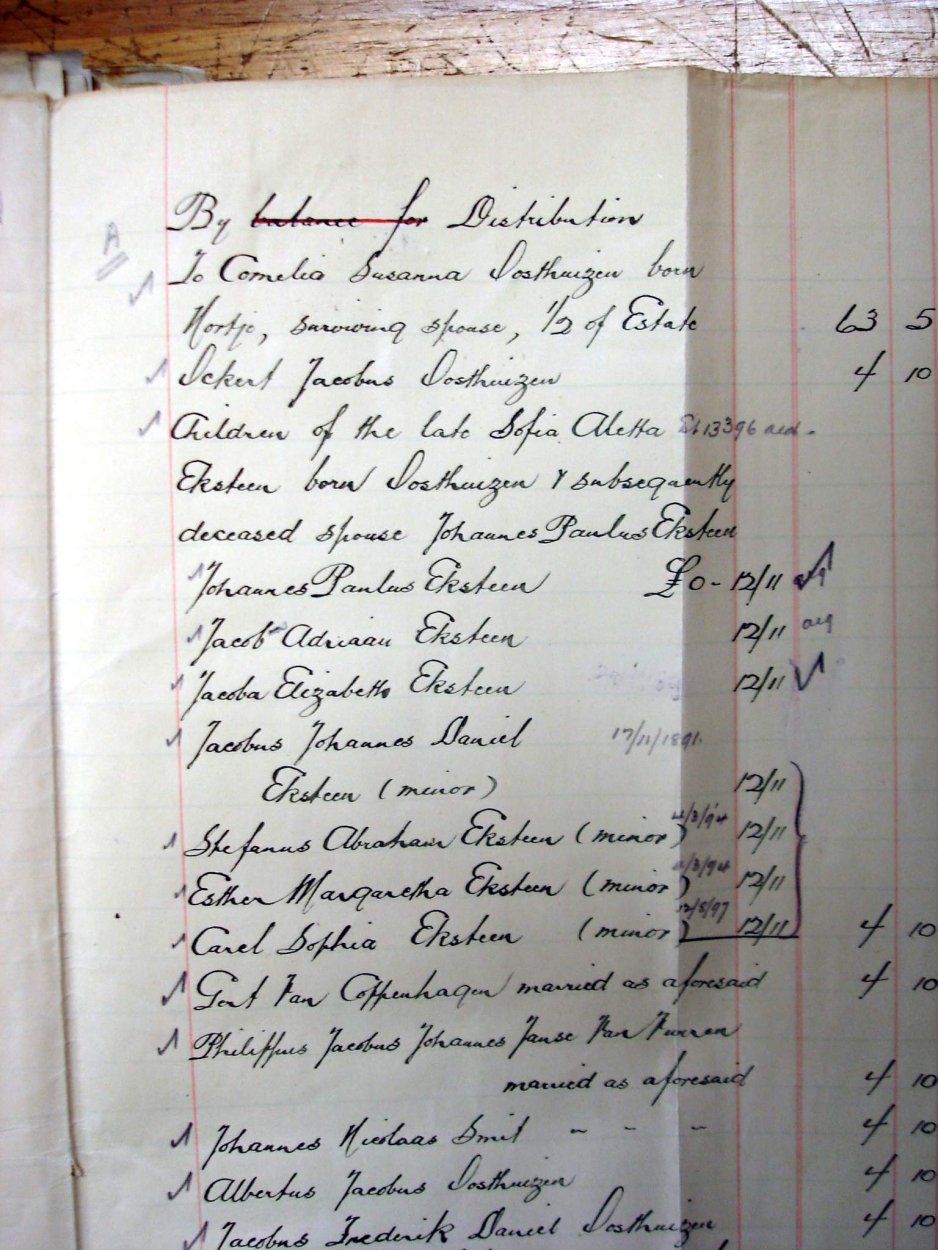 A
By balance for Distribution
To Cornelia Susanna Oosthuizen born
Mortje, surviving spouse, 1/2 of Estate 63 5
Ockert Jacobus Oosthuizen 4 10
Children of the late Sofia Aletta
Eksteen born Oosthuizen & subsequently
deceased spouse Johannes Paulus Eksteen
Johannes Paulus Eksteen £0-12/11
Jacob Adriaan Eksteen 12/11
Jacoba Elizabeth Eksteen 12/11
Jacobus Johannes Daniel 17/11/1891.
Eksteen (minor) 12/11
Stefanus Abraham Eksteen (minor) 12/11
Esther Margaretha Eksteen (minor) 12/11
Carel Sophia Eksteen (minor) 12/5/97 12/11 4 10
Gert Van Coppenhagen married as aforesaid 4 10
Philippus Jacobus Johannes Janse Van Vuuren
married as aforesaid 4 10
Johannes Nicolaas Smit " " " 4 10
Albertus Jacobus Oosthuizen 4 10
Jacobus Frederik Daniel Oosthuizen 4 10